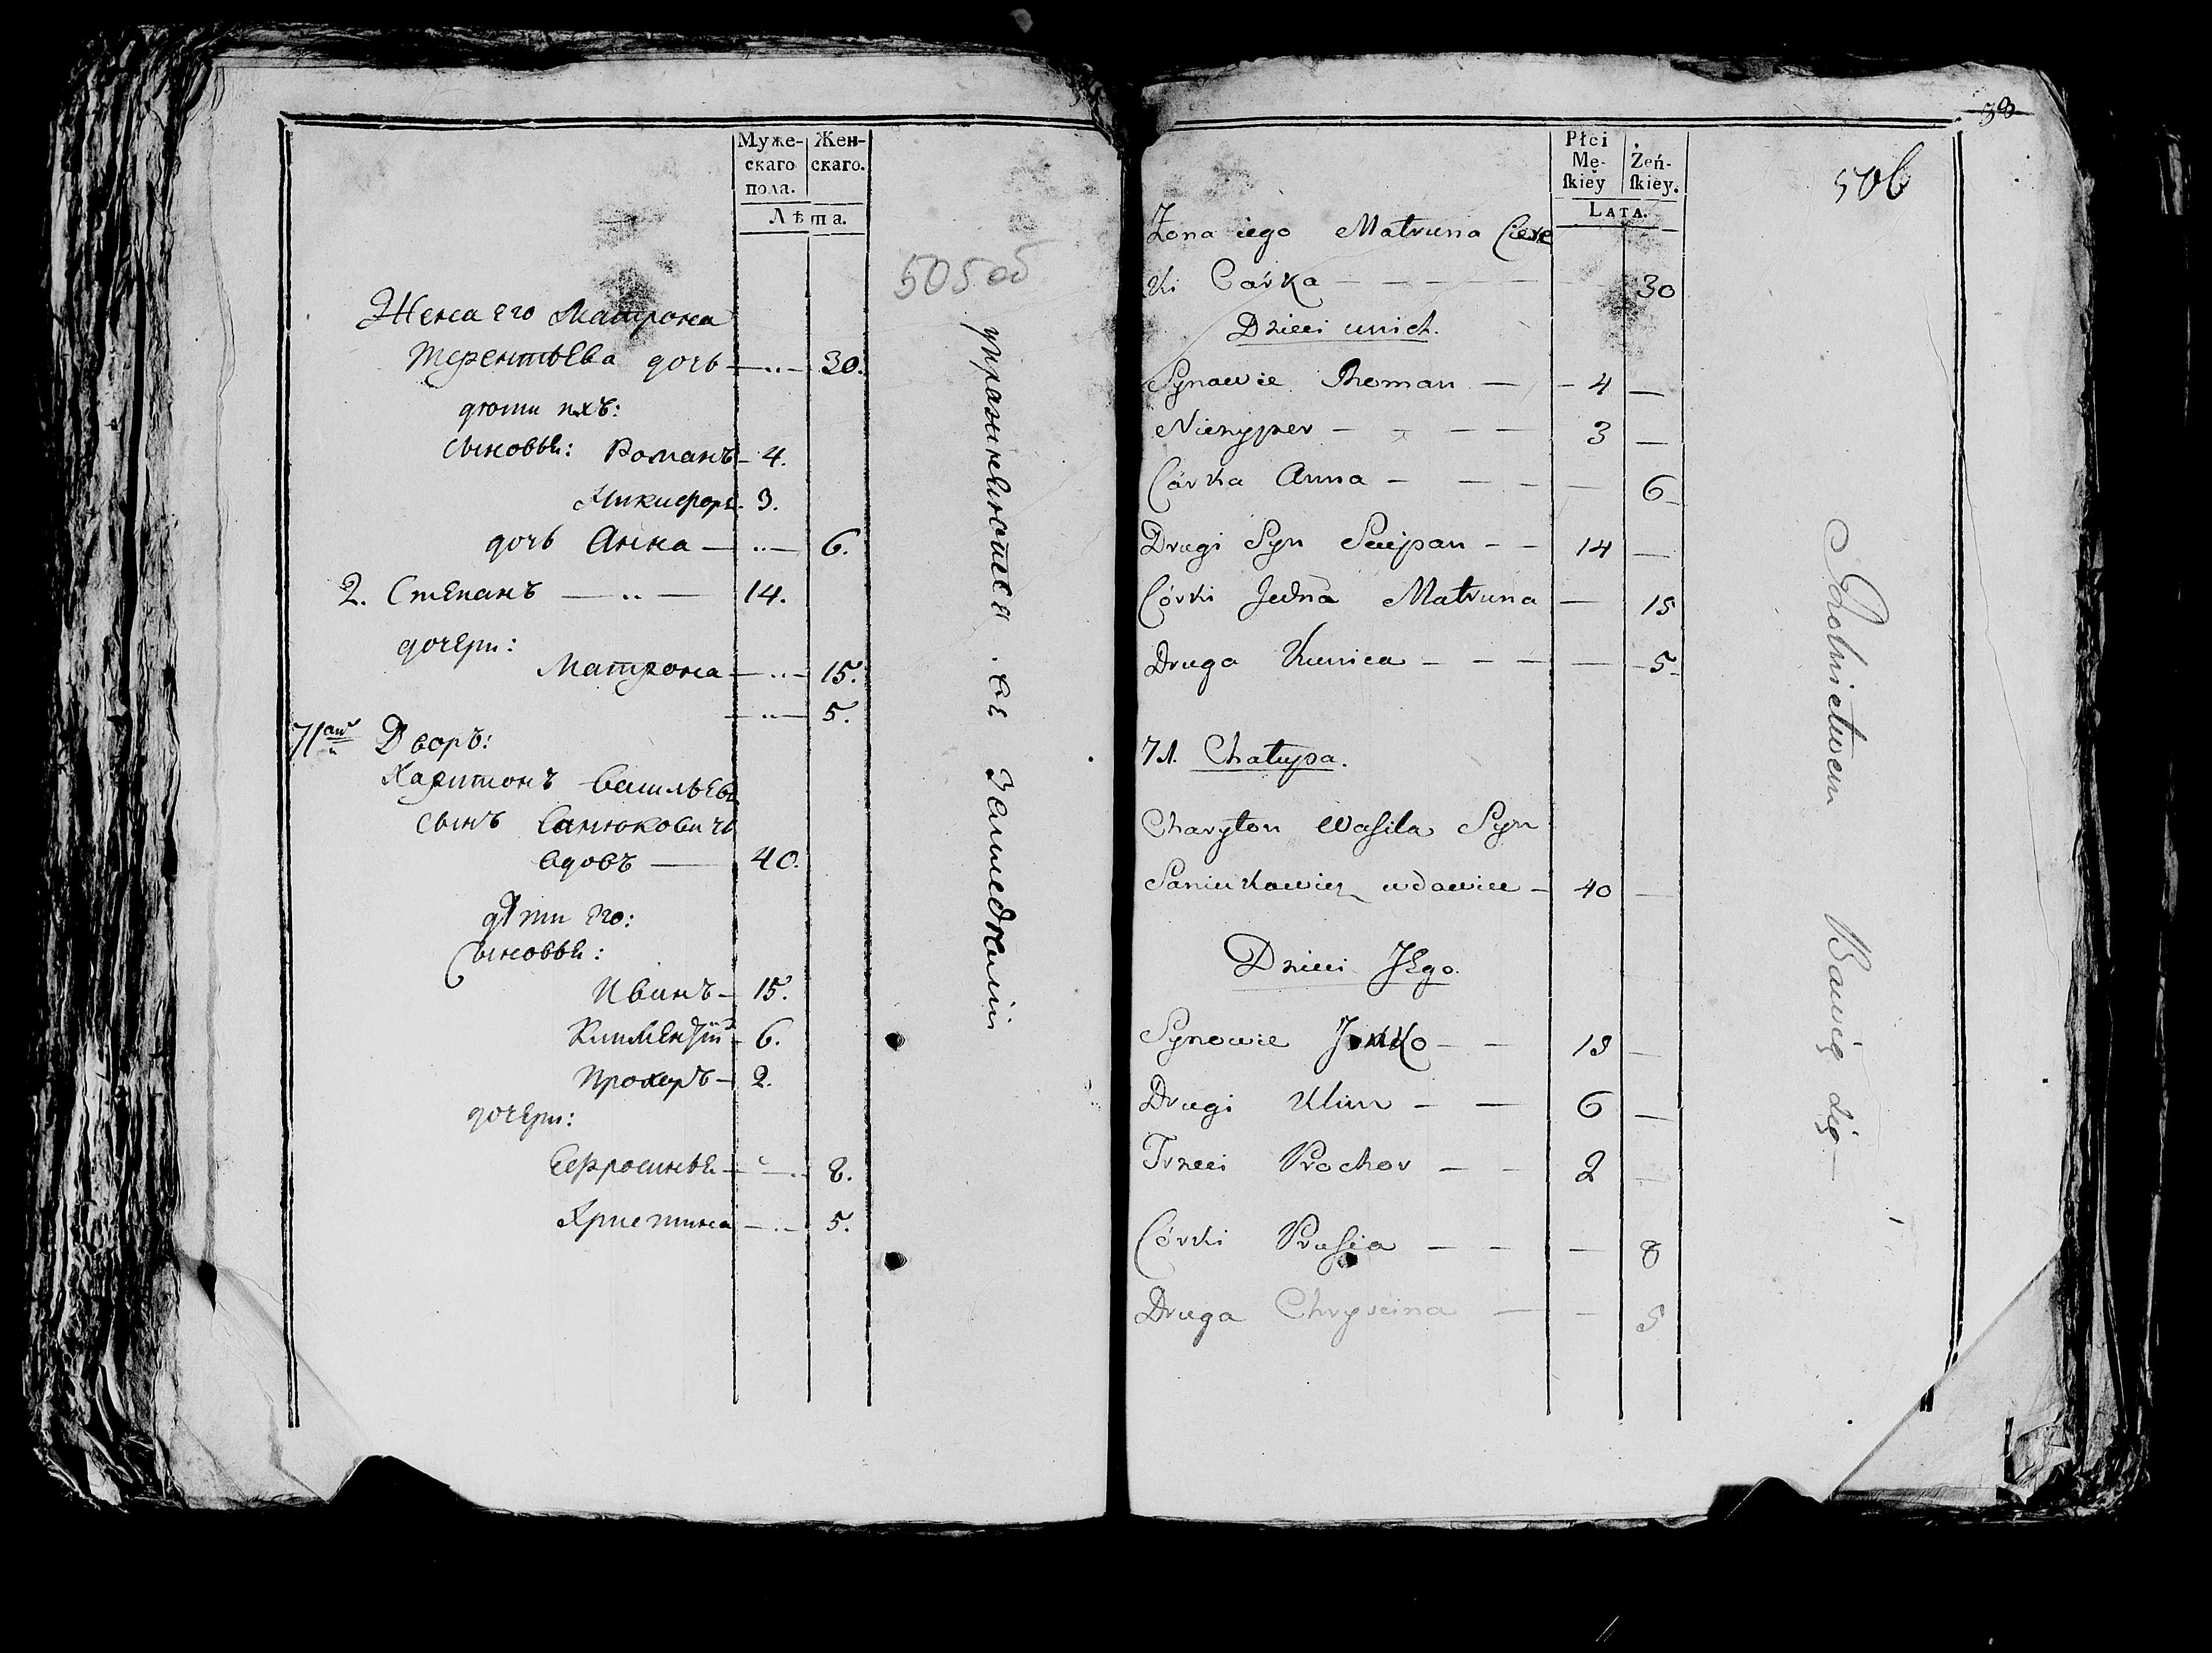 Муже-
скаго
пола.
Жен-
скаго.
Лѣта.
505 об
Жена его Матрона
Терентьева дочь — 30.
дѣти ихъ:
сыновья: Романъ — 4.
Никифоръ 3.
дочь Анна — 6.
2. Степанъ — 14.
дочери:
Матрона — 15.
— 5.
71 Дворъ:
Харитонъ Васильевъ
сынъ Санюковичь
вдовъ — 40.
дѣти его:
Сыновья:
Иванъ — 15.
Климентій — 6.
Прохоръ — 2.
дочери:
Ефросинья — 8.
Христина — 5.
упражняются въ Земледѣліи
58
506
Płci
Mę-
ſkiey
Żeń-
ſkiey.
LATA.
Żona iego Matruna Ciere
ki Córka — 30
Dzieci unich.
Synowie Roman — 4 —
Nichyper — 3 —
Córka Anna — 6
Drugi Syn Sciepan — 14 —
Córki Jedna Matruna — 15
Druga Kunica — 5
71. Chałupa.
Charyton Wasila Syn
Saniukowicz wdowiec — 40 —
Dzieci JEgo.
Synowie Janko — 15 —
Drugi Klim — 6 —
Trzeci Prochor — 2 —
Córki Prusia — 8
Druga Chryscina — 5
Rolnictwem Bawią się —